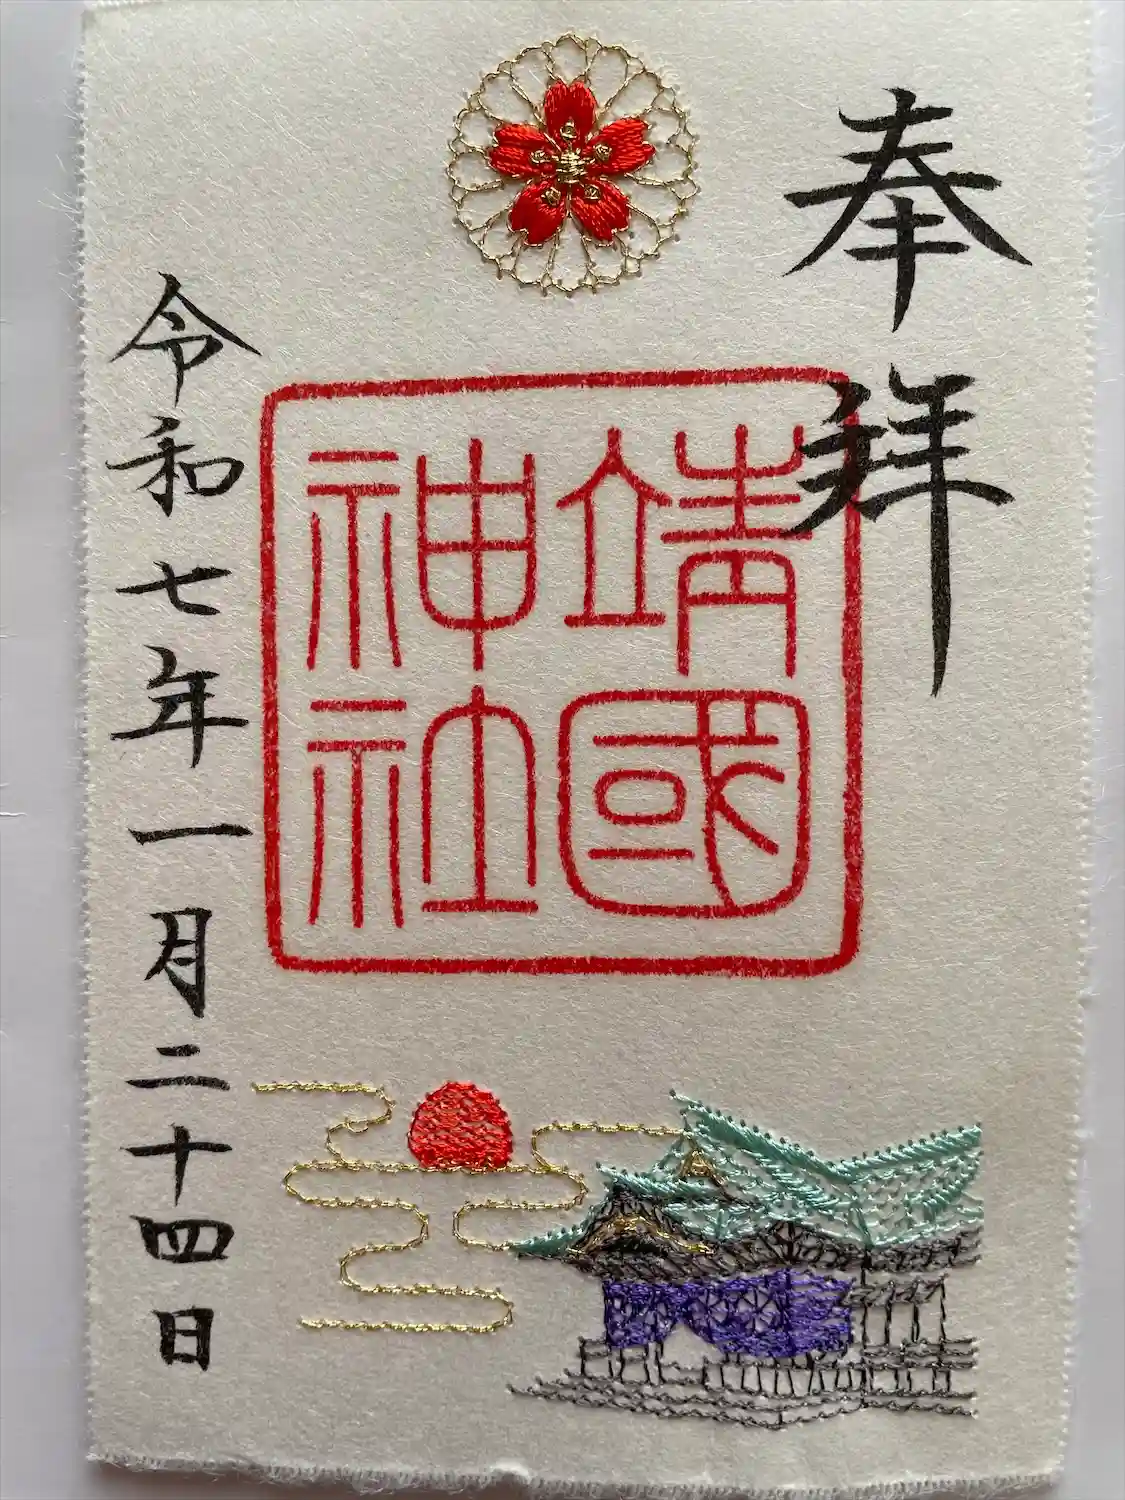 奉拜
靖國
神社
令和七年一月二十四日